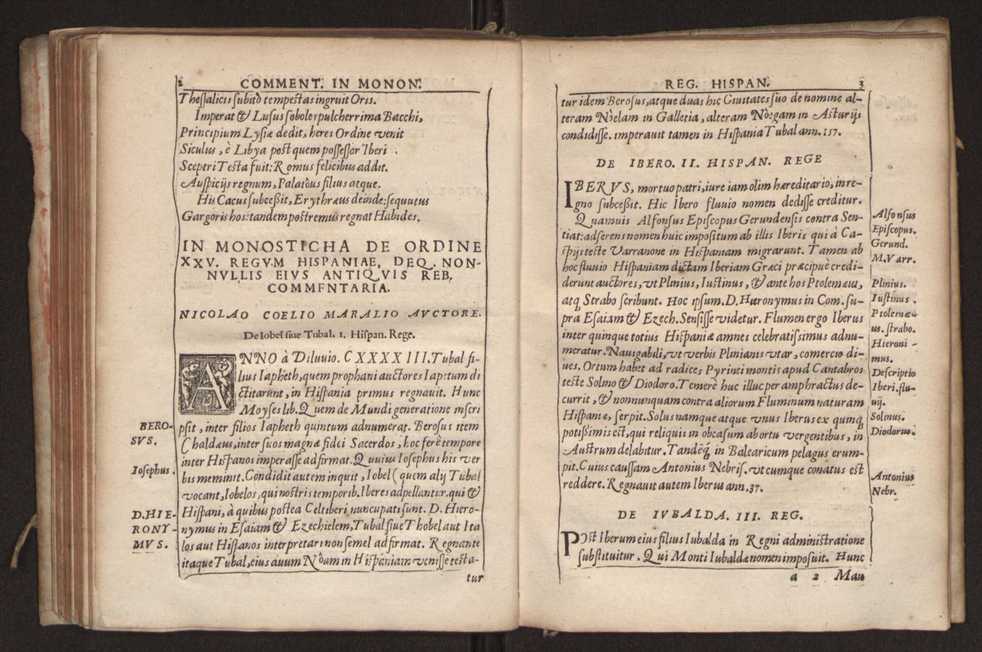 2 COMMENT. IN MONON.
Thessalicis subitò tempestas ingruit Oris.
Imperat & Lusus soboles pulcherrima Bacchi,
Principium Lysiæ dedit, heres Ordine venit
Siculus, è Libya post quem possessor Iberi
Sceptri Testa fuit: Romus felicibus addit.
Auspicijs regnum, Palatous filius atque.
His Cacus subceßit, Erythræus deinde: sequutus
Gargoris hos: tandem postremus regnat Habides.
IN MONOSTICHA DE ORDINE
XXV. REGVM HISPANIAE, DEQ. NON-
NVLLIS EIVS ANTIQVIS REB.
COMMENTARIA.
NICOLAO COELIO MARALIO AVCTORE.
De Iobel siue Tubal. 1. Hispan. Rege.
ANNO à Diluuio. CXXXXIII. Tubal fi-
lius Iapheth, quem prophani auctores Iapetum di
ctitarunt, in Hispania primus regnauit. Hunc
Moyses lib. Quem de Mundi generatione inscri
psit, inter filios Iapheth quintum adnumerat. Berosus item
Chaldæus, inter suos magnæ fidei Sacerdos, hoc ferè tempore
inter Hispanos imperasse adfirmat. Quuius Iosephus his ver
bis meminit. Condidit autem inquit, Iobel (quem alij Tubal
vocant, Iobelos, qui nostris temporib. Iberes adpellantur. qui &
Hispani, à quibus postea Celtiberi nuncupati sunt. D. Hiero-
nymus in Esaiam & Ezechielem, Tubal siue Thobel aut Ita
los aut Hispanos interpretari non semel adfirmat. Regnante
itaque Tubal, eius auum Noam in Hispaniam venisse testa-
tur
BERO-
SVS.
Iosephus.
D. HIE-
RONY-
MVS.
REG. HISPAN. 3
tur idem Berosus, atque duas hic Ciuitates suo de nomine al-
teram Noelam in Galletia, alteram Noegam in Asturijs
condidisse. imperauit tamen in Hispania Tubal ann. 157.
DE IBERO. II. HISPAN. REGE
IBERVS, mortuo patri, iure iam olim hæreditario, in re-
gno subceßit. Hic Ibero fluuio nomen dedisse creditur.
Quamuis Alfonsus Episcopus Gerundensis contra Sen-
tiat: adserens nomen huic impositum ab illis Iberis qui à Ca-
spijs teste Varranone in Hispaniam migrarunt. Tamen ab
hoc fluuio Hispaniam dictam Iberiam Græci præcipuè credi-
derunt auctores, vt Plinius, Iustinus, & ante hos Ptolemæus,
atq. Strabo scribunt. Hoc ipsum. D. Hieronymus in Com. su-
pra Esaiam & Ezech. Sensisse videtur. Flumen ergo Iberus
inter quinque totius Hispaniæ amnes celebratissimus adnu-
meratur. Nauigabili, vt verbis Plinianis vtar, comercio di-
ues. Ortum habet ad radices Pyrinei montis apud Cantabros
teste Solino & Diodoro. Temerè huc illuc per amphractus de-
currit, & nonnunquam contra aliorum Fluminum naturam
Hispaniæ, serpit. Solus namque atque vnus Iberus ex quinq;
potißimis est, qui reliquis in obcasum ab ortu vergentibus, in
Austrum delabitur. Tandeq́; in Balearicum pelagus erum-
pit. Cuius caussam Antonius Nebriss. vtcumque conatus est
reddere. Regnauit autem Iberus ann. 37.
DE IVBALDA. III. REG.
POst Iberum eius filius Iubalda in Regni administratione
substituitur. Qui Monti Iubaldæ nomen imposuit. Hunc
a 2 Mon
Alfonsus
Episcopus.
Gerund.
M. Varr.
Plinius.
Iustinus.
Ptolemæ-
us. strabo.
Hieroni-
mus.
Descriptio
Iberi. flu-
uij.
Solinus.
Diodorus.
Antonius
Nebr.